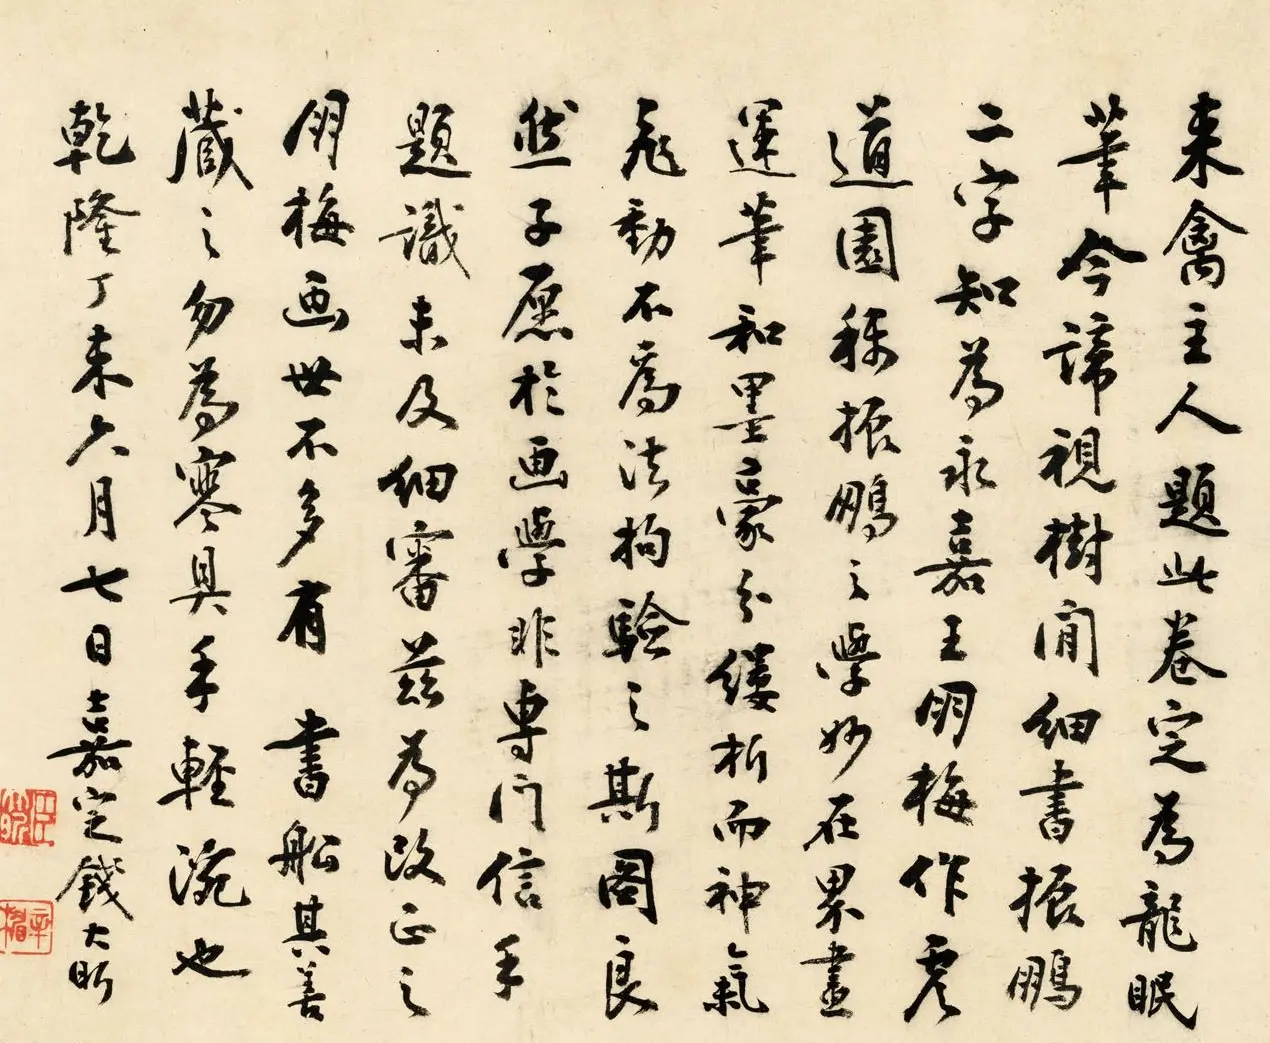 来禽主人題此卷定為龍眠
筆今諦視樹间細書振鵬
二字知為永嘉王朋梅作虞
道園稱振鵬之學妙在界畫
運筆和墨豪分縷析而神氣
飛動不為法拘驗之斯圖良
然子愿於画學非專門信手
題識未及細審茲為改正之
朋梅画世不多有 書船其善
藏之勿為寒具手輕涴也
乾隆丁未六月七日嘉定錢大昕
辛楣